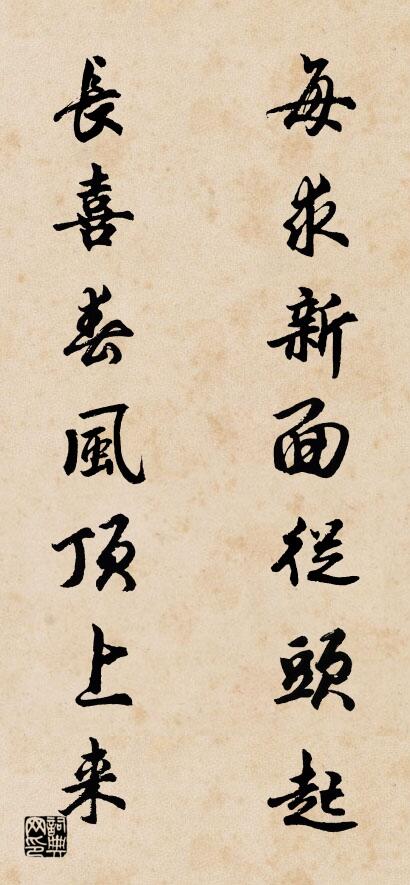 每求新面從頭起
長喜春風頂上来
詞典网印